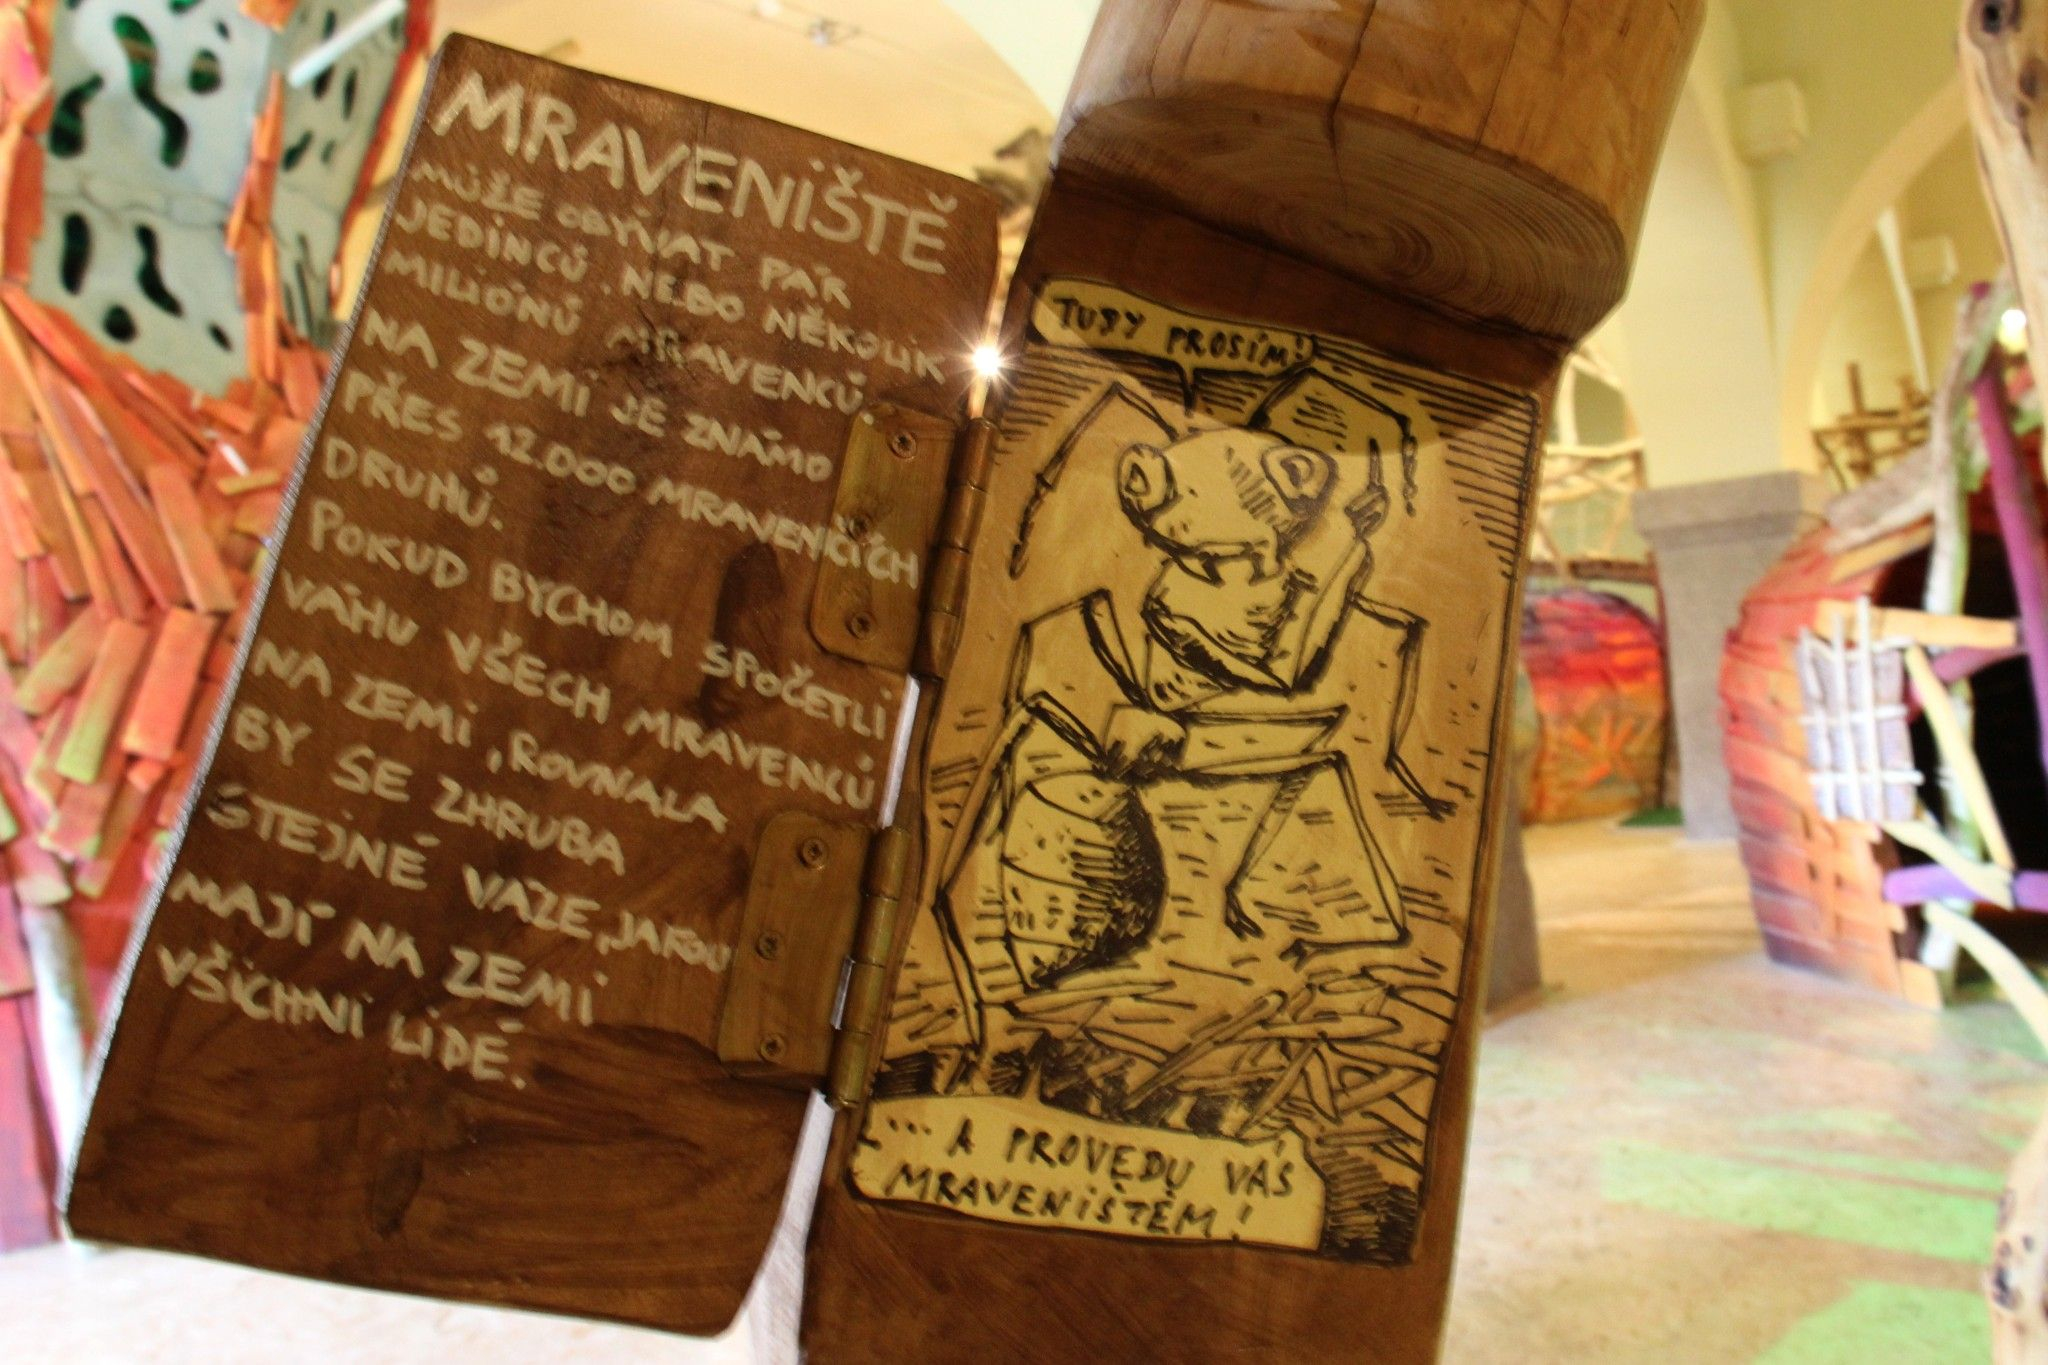 MRAVENIŠTĚ
MŮŽE OBÝVAT PÁR
JEDINCŮ NEBO NĚKOLIK
MILIÓNŮ MRAVENCŮ.
NA ZEMI JE ZNÁMO
PŘES 12.000 MRAVENČÍCH
DRUHŮ.
POKUD BYCHOM SPOČETLI
VÁHU VŠECH MRAVENCŮ
NA ZEMI, ROVNALA
BY SE ZHRUBA
STEJNÉ VÁZE, JAKOU
MAJÍ NA ZEMI
VŠICHNI LIDÉ.
TUDY PROSÍM!
... A PROVEDU VÁS
MRAVENIŠTĚM!